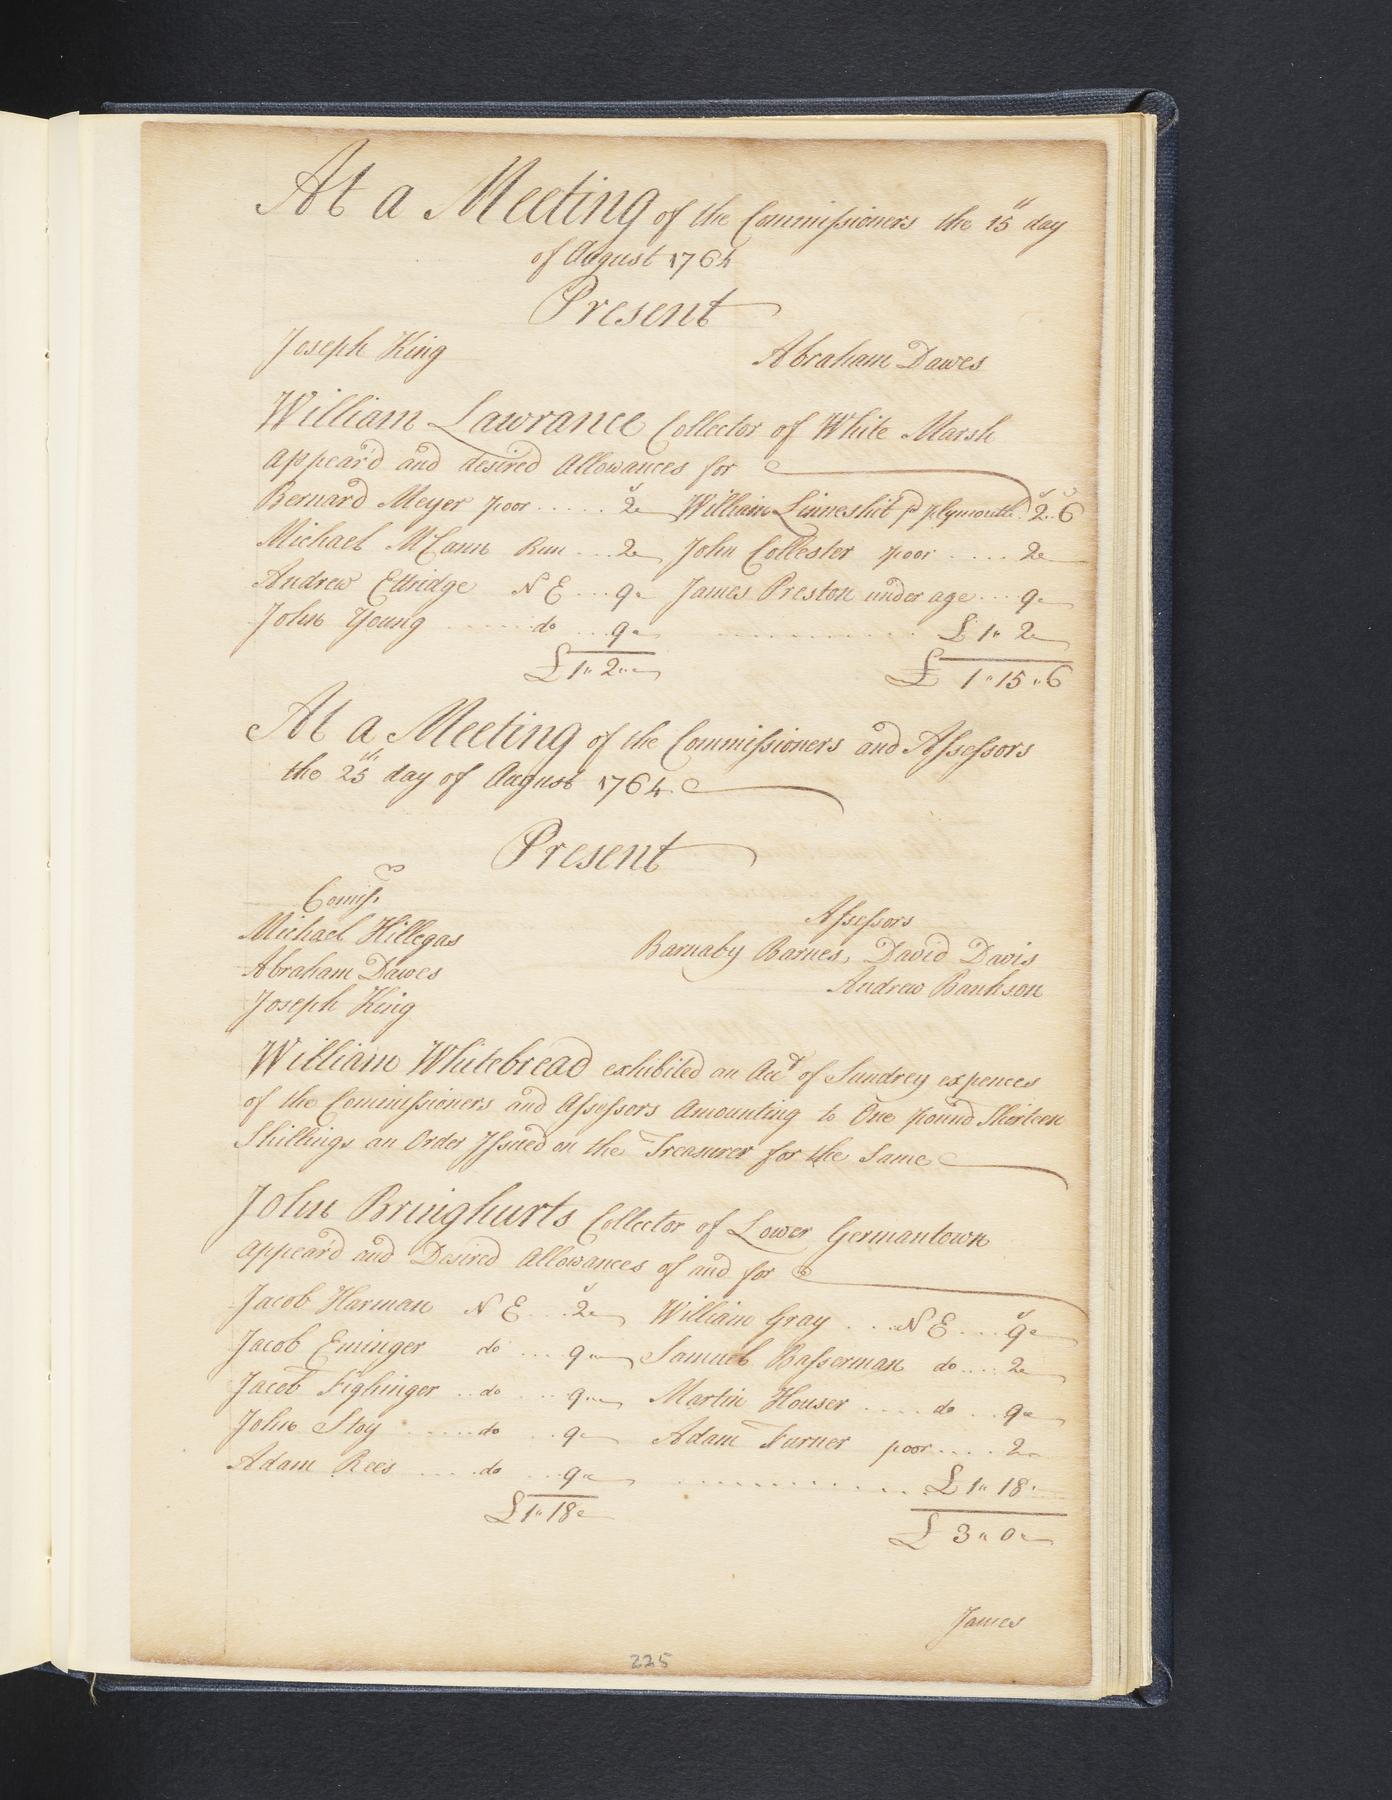 At a Meeting of the Commissioners the 15th day
of August 1764
Present
Joseph King Abraham Dawes
William Lawrance Collector of White Marsh
appear'd and desired Allowances for
Bernard Meyer poor ..... 2 William Linneshit pd plymouth 2..6
Michael McCann Run ... 2 John Collester poor ..... 2
Andrew Ettridge N E ... 9 James Preston under age .... 9
John Young ...... do ... 9 ........... £ 1" 2
£ 1" 2 £ 1"15"6
At a Meeting of the Commissioners and Assessors
the 25th day of August 1764
Present
Comissrs
Assessors
Michael Hillegas
Barnaby Barnes, David Davis
Abraham Dawes
Andrew Bankson
Joseph King
William Whitebread exhibited an Acct of Sundrey expences
of the Commissioners and Assessors Amounting to One pound Thirteen
Shillings an Order Issued on the Treasurer for the Same
John Bringhurts Collector of Lower Germantown
appear'd and Desired Allowances of and for
Jacob Harman N E ... 2 William Gray ... N E ... 9
Jacob Eminger do .... 9 Samuel Basserman do .... 2
Jacob Fighinger .. do ... 9 Martin Houser ..... do ... 9
John Stoy ..... do .. 9 Adam Furner poor .... 2
Adam Rees .... do ... 9 ............ £ 1" 18
£ 1" 18 £ 3" 0
James
225